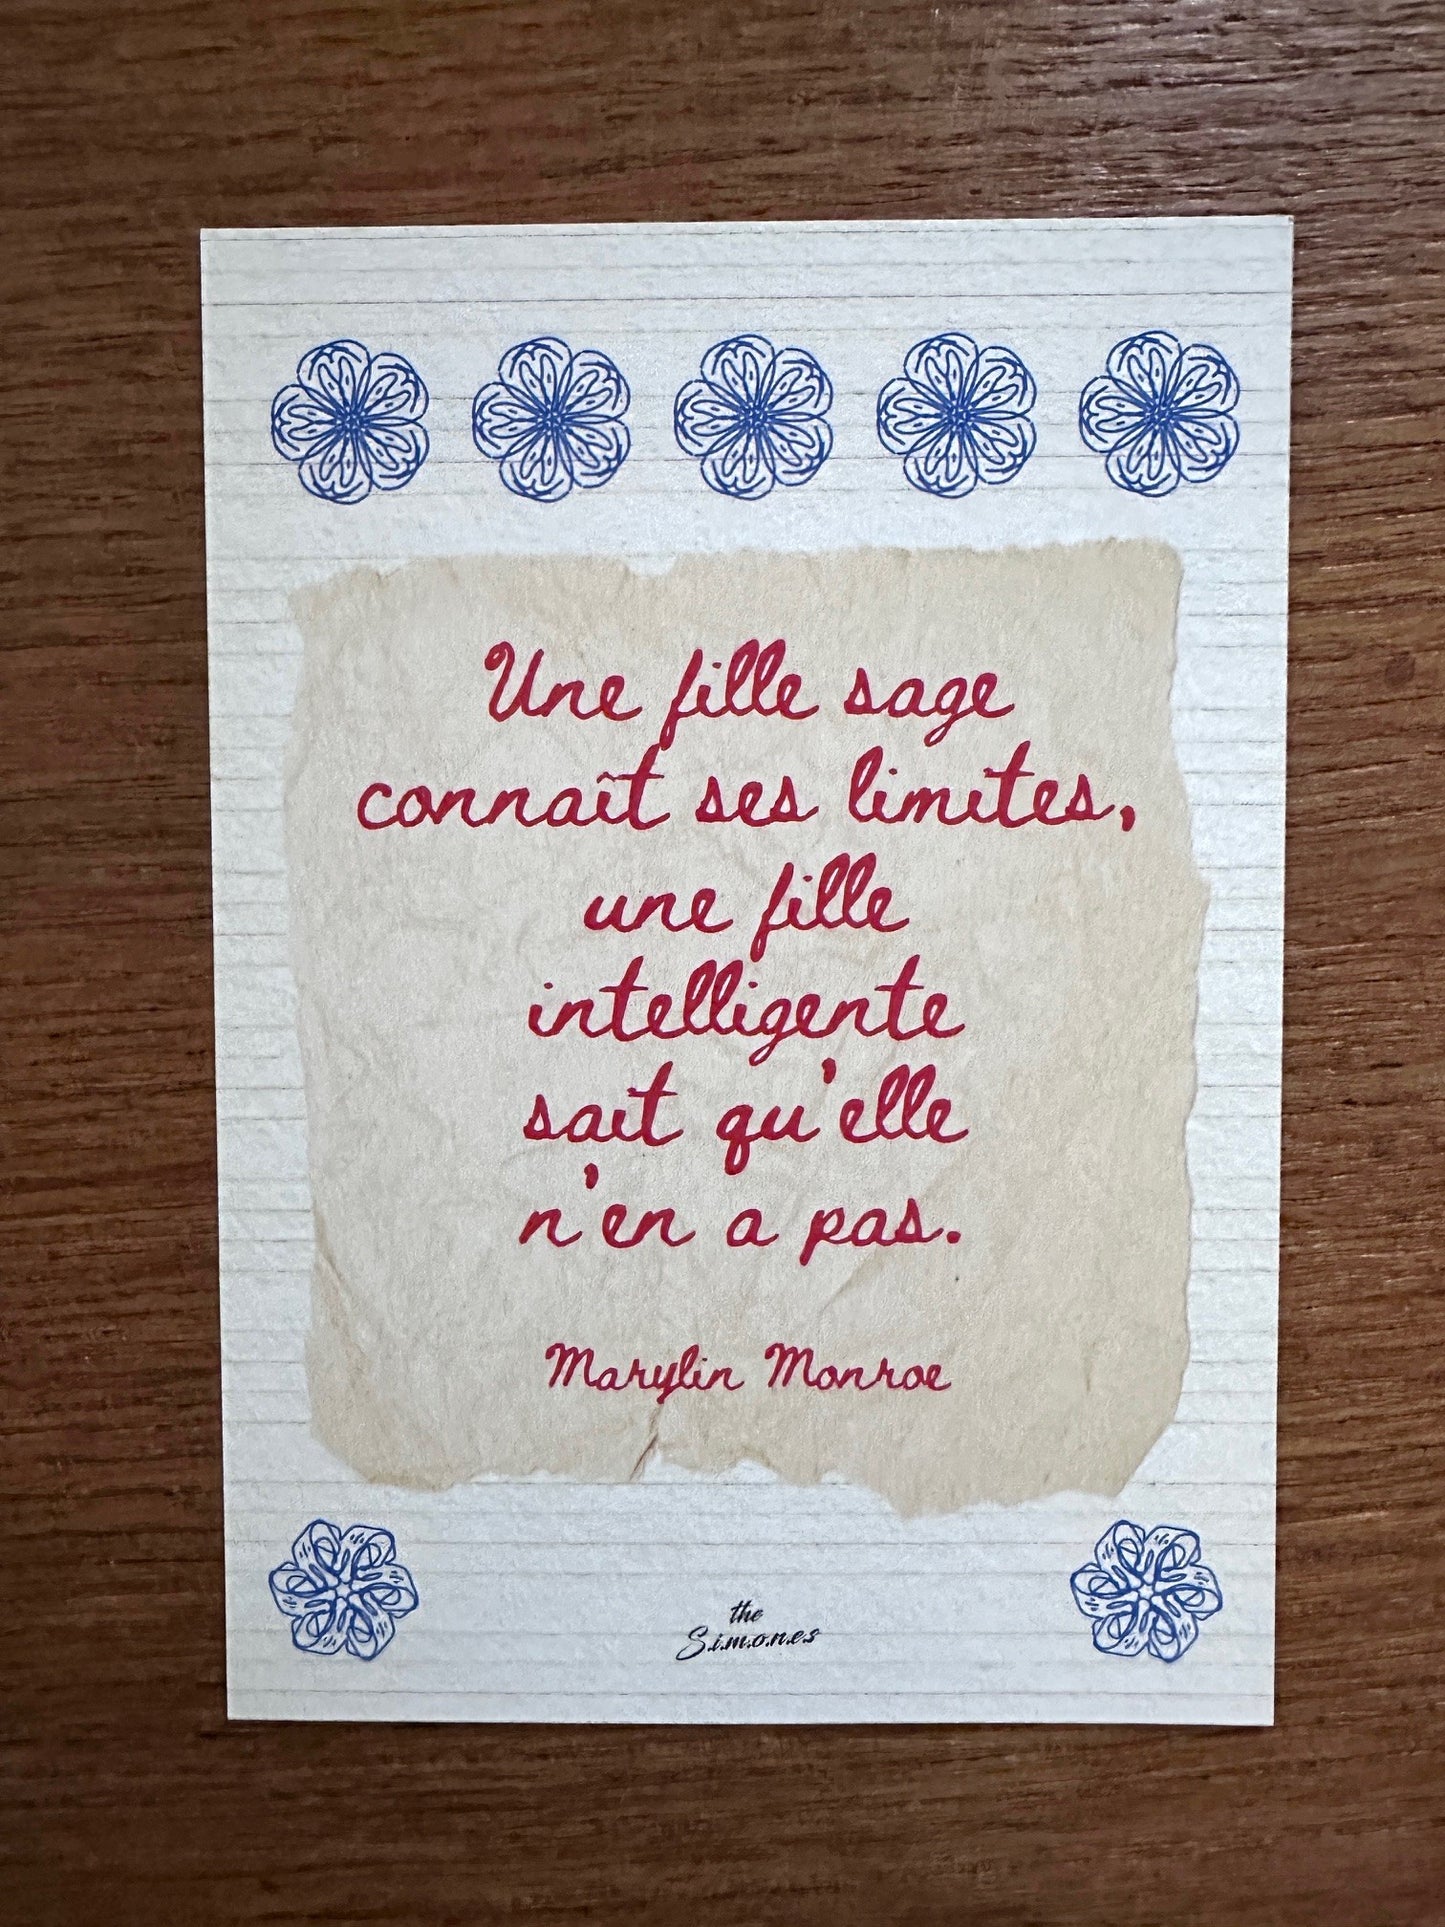 Une fille sage
connaît ses limites,
une fille
intelligente
sait qu'elle
n'en a pas.
Marylin Monroe
the
S.i.m.o.n.e.s